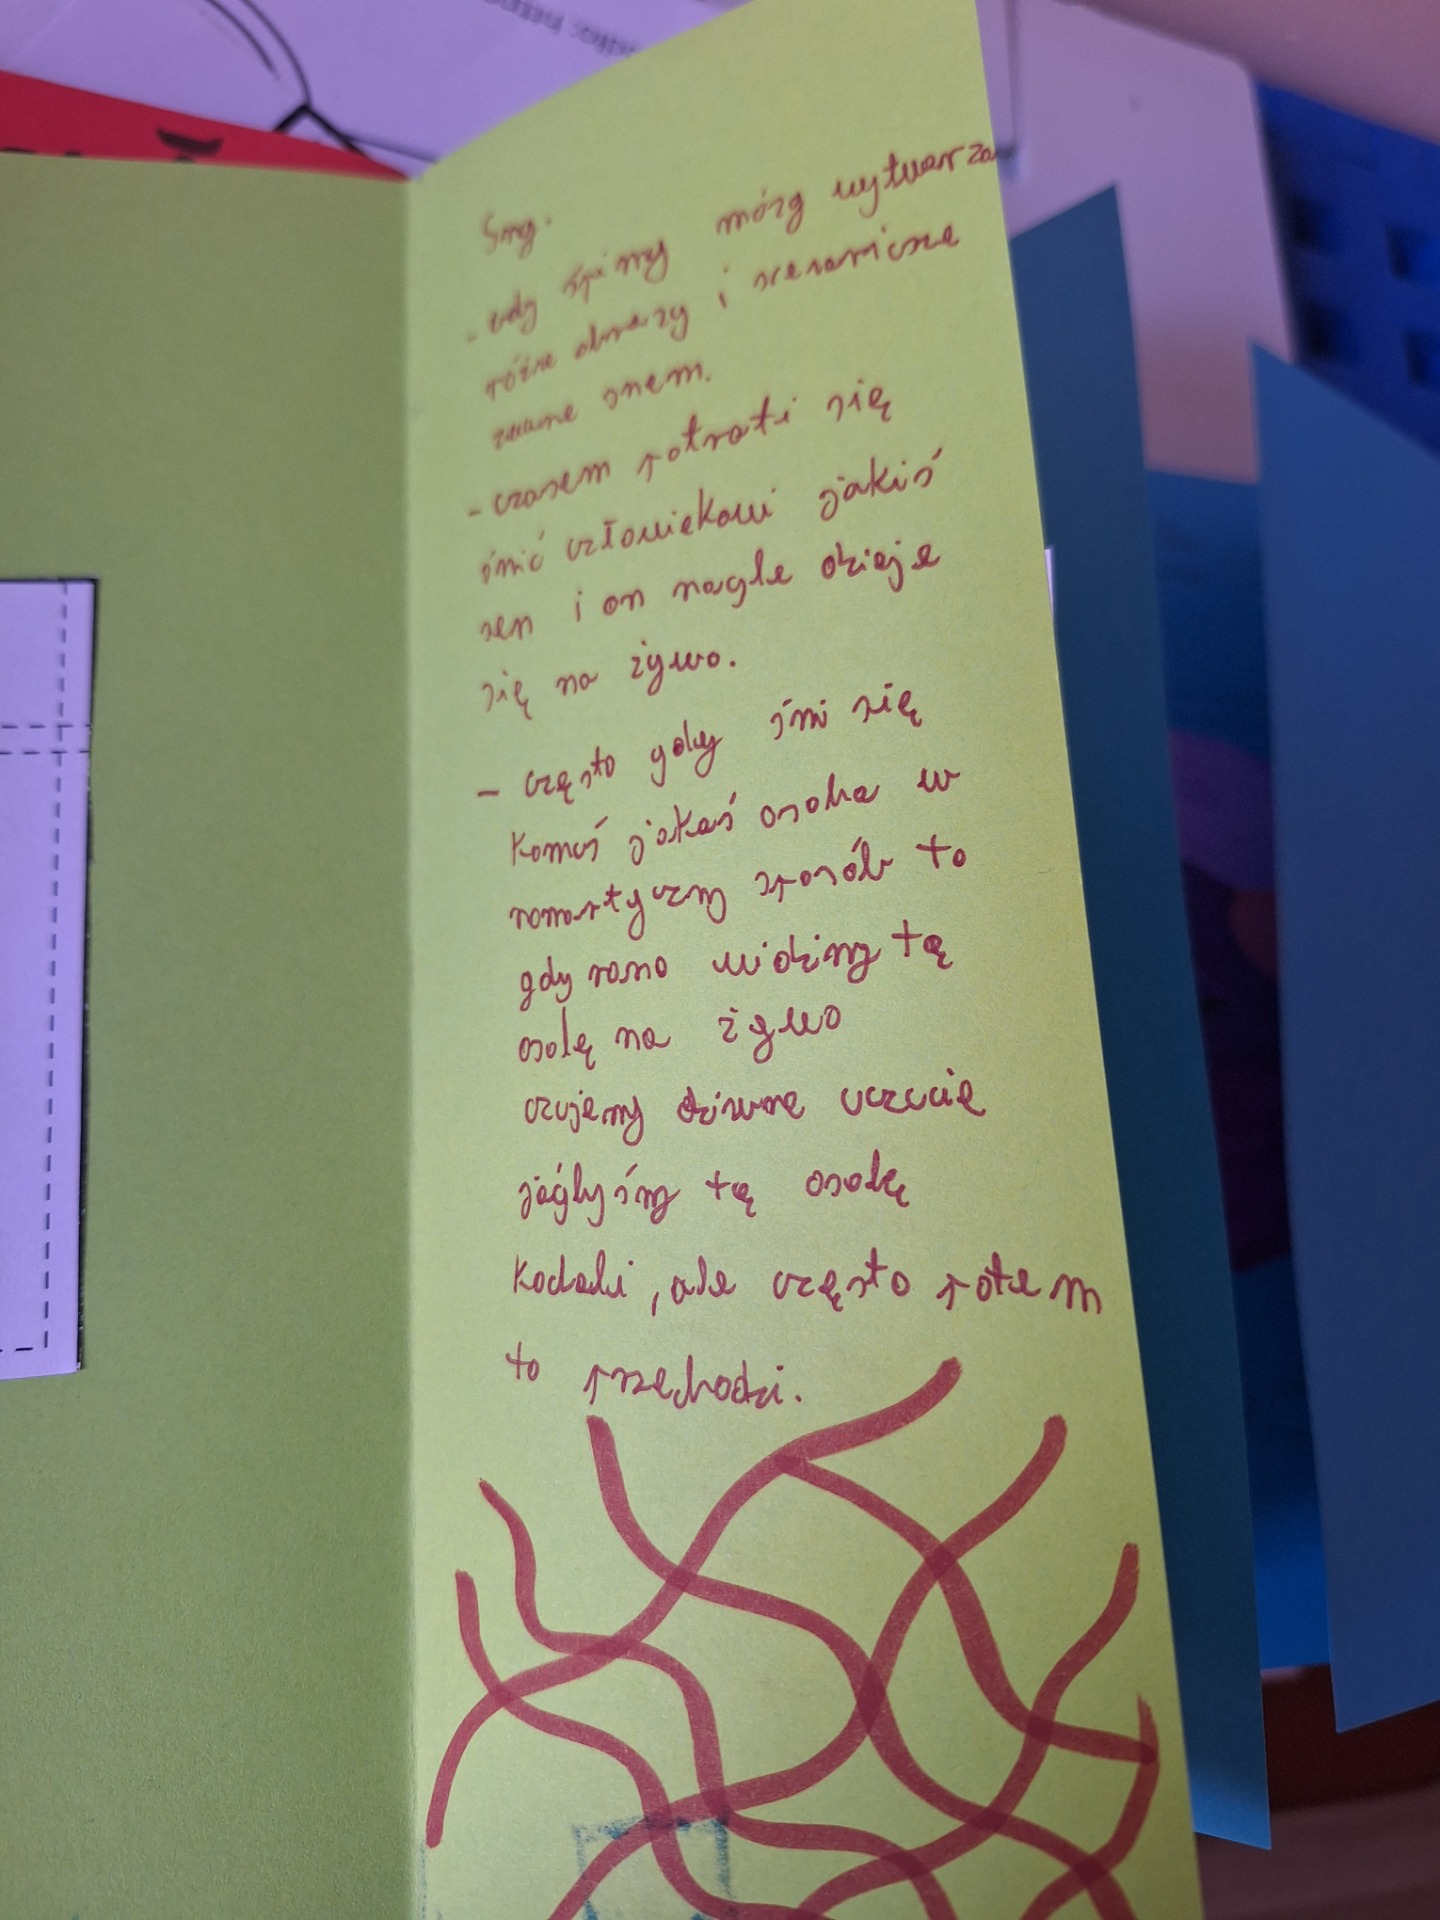 Sny.
- gdy śpimy mózg wytwarza
różne obrazy i scenariusze
zwane snem.
- czasem potrafi się
śnić człowiekowi jakiś
sen i on nagle dzieje
się na żywo.
- często gdy śni się
komuś jakaś osoba w
romantyczny sposób to
gdy rano widzimy tą
osobę na żywo
czujemy dziwne uczucie
jagbyśmy tą osobę
kochali, ale często potem
to przechodzi.